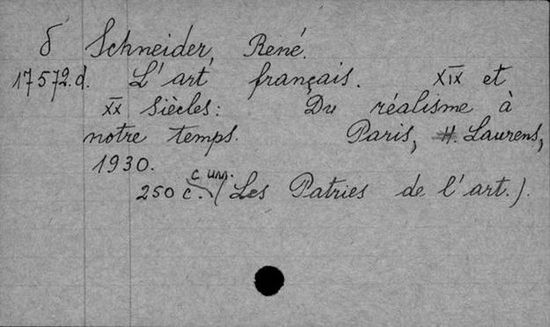 δ Schneider, René.
17572.d. L'art français. XIX et
XX Siècles: Du réalisme à
notre temps. Paris, H. Laurens,
1930.
250 c. с илл. (Les Patries de l'art.).